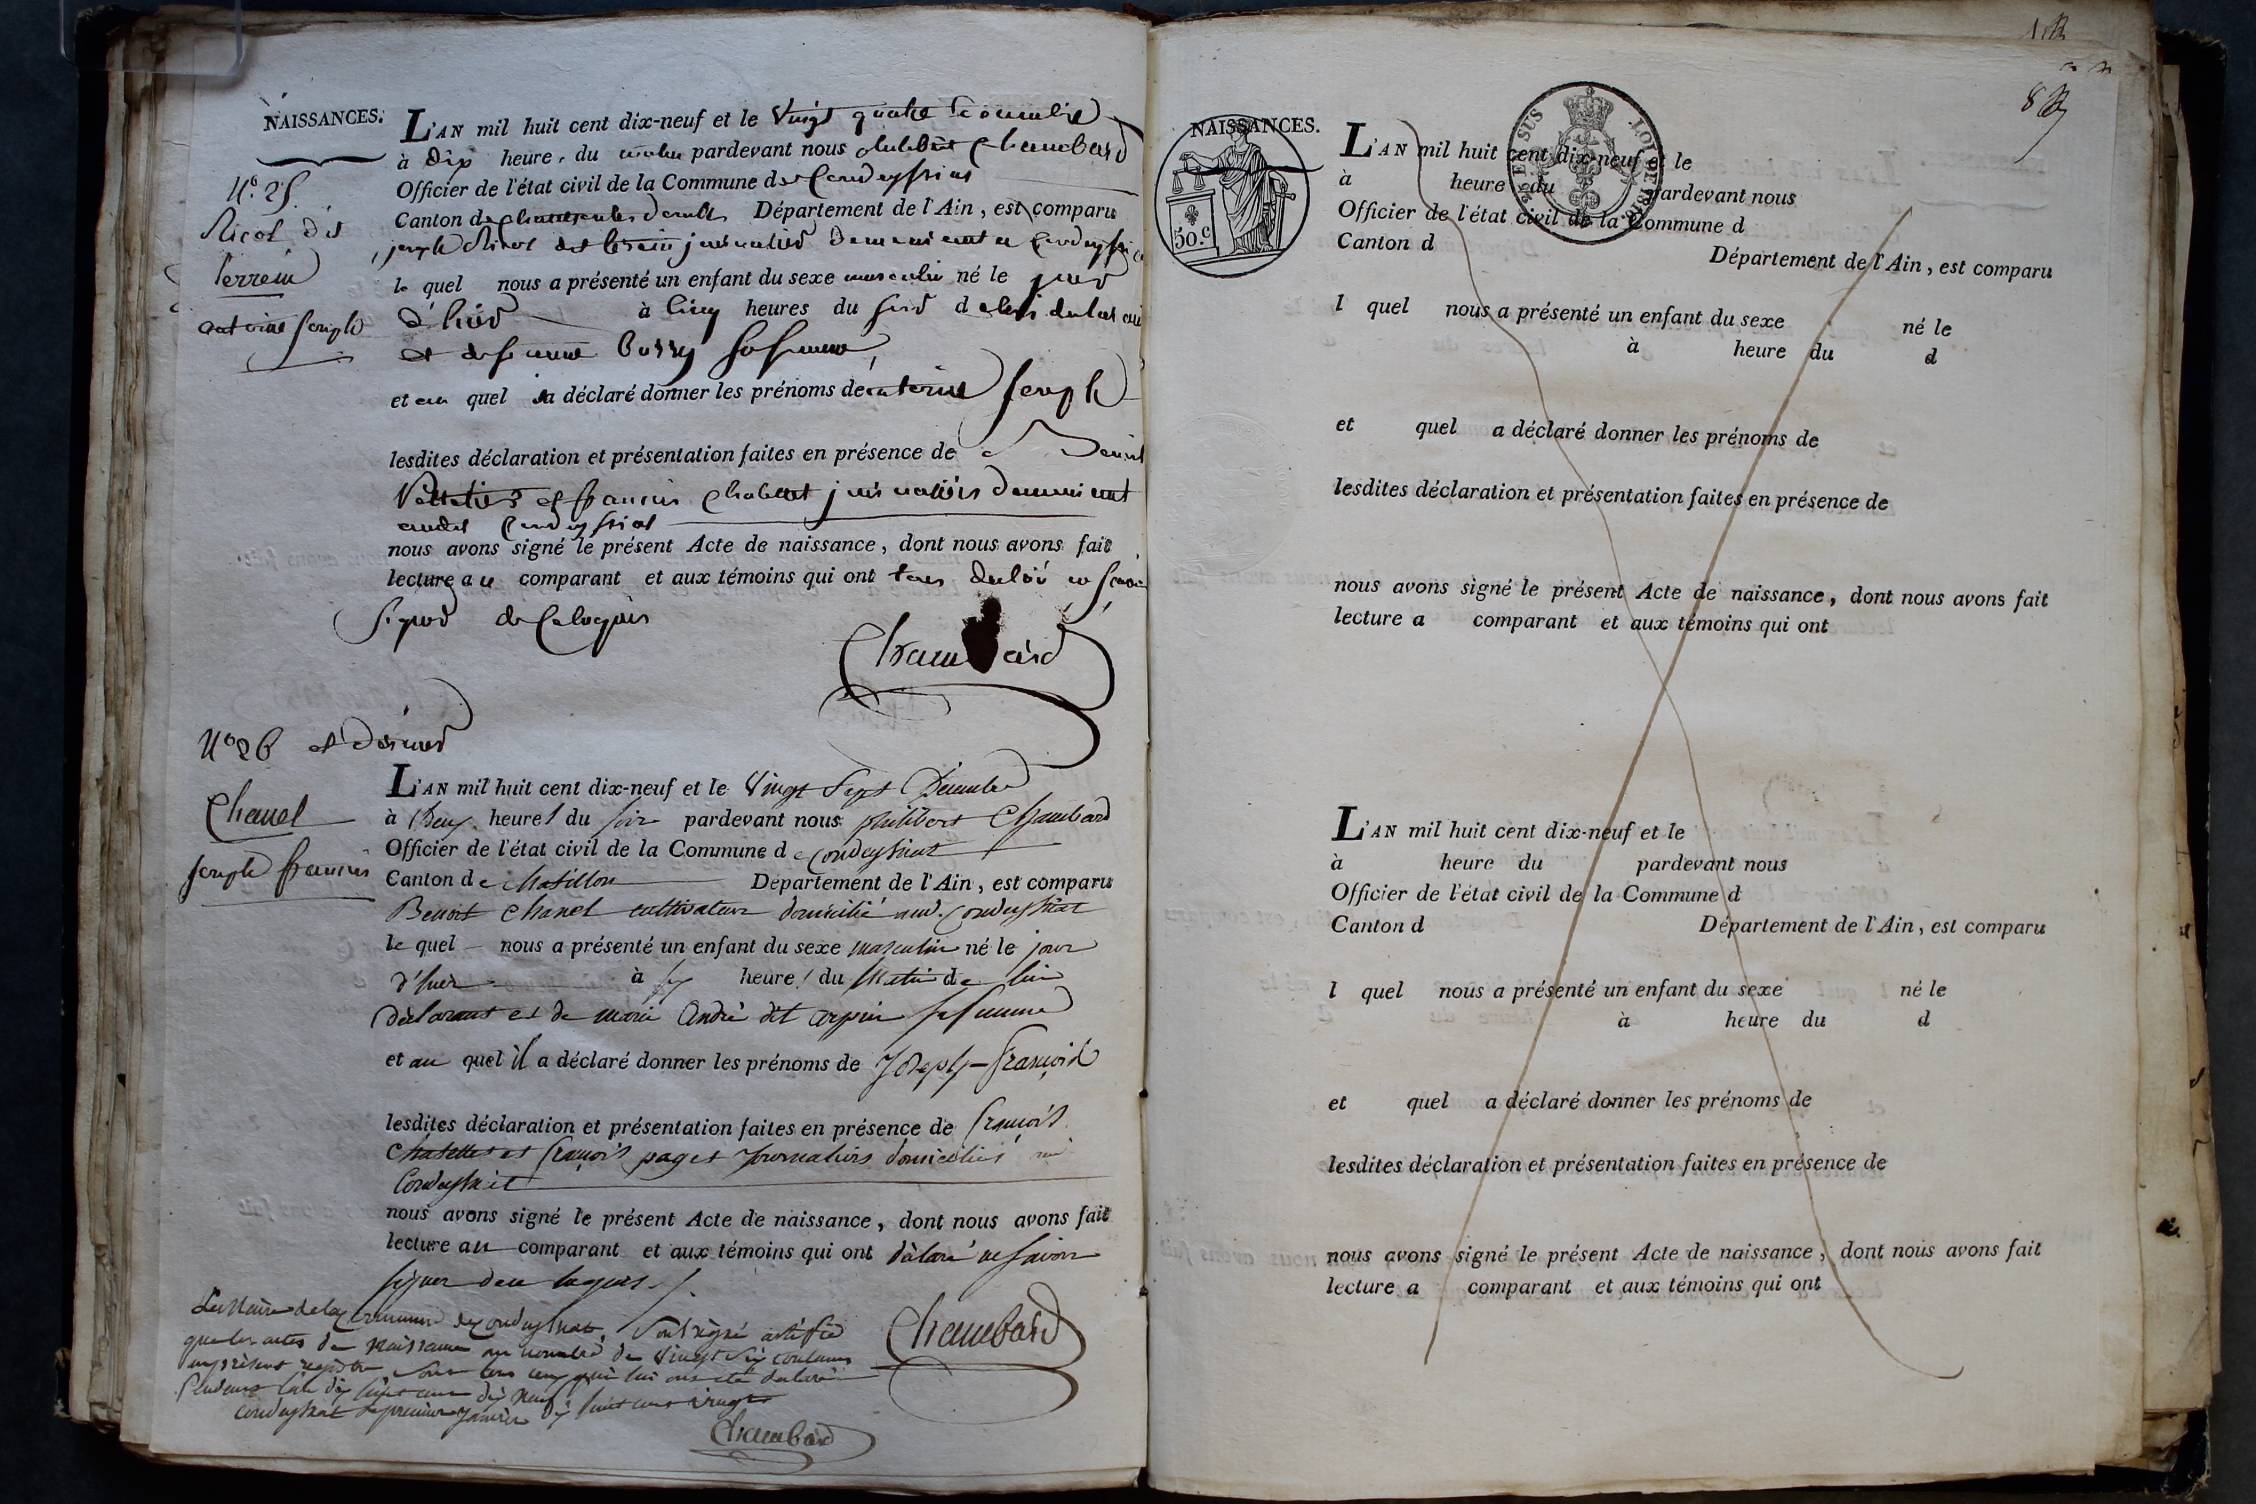 NAISSANCES.
L'AN mil huit cent dix-neuf et le Vingt quatre
à dix heure, du matin pardevant nous Chambard
Officier de l'état civil de la Commune de Condeyssiat
Canton de Département de l'Ain, est comparu
N.º 25.
dit
joseph dit journalier demeurant a Condeyssiat
perrein
le quel nous a présenté un enfant du sexe masculin né le jour
antoine Joseph
d'hier à cinq heures du soir de
et de jeanne sa femme
et au quel a déclaré donner les prénoms de antoine joseph
lesdites déclaration et présentation faites en présence de Benoit
et francois Chatelet journaliers demeurant
audit Condeyssiat
nous avons signé le présent Acte de naissance, dont nous avons fait
lecture au comparant et aux témoins qui ont tous déclaré ne savoir
signer de ce enquis
Chambard
Nº 26 et dernier
L'AN mil huit cent dix-neuf et le Vingt Sept Décembre
Chanel
à Deux heures du soir pardevant nous philibert Chambard
Officier de l'état civil de la Commune de Condeyssiat
joseph francois
Canton de Chatillon Département de l'Ain, est comparu
Benoit Chanel cultivateur domicilié aud. Condeyssiat
le quel nous a présenté un enfant du sexe masculin né le jour
d'hier à six heures du Matin de lui
déclarant et de marie André dit sa femme
et au quel il a déclaré donner les prénoms de Joseph-François
lesdites déclaration et présentation faites en présence de François
Chatelet et François paget journaliers domiciliés
Condeyssiat
nous avons signé le présent Acte de naissance, dont nous avons fait
lecture au comparant et aux témoins qui ont déclaré ne savoir
signer de ce enquis.
Le Maire de la Commune de Condeyssiat, Soussigné certifie
Chambard
que les actes de Naissance au nombre de Vingt Six contenus
au présent registre sont tous ceux qui lui ont été déclarés
dix huit cent dix Neuf
Condeyssiat le premier Janvier dix huit cent vingt
Chambard
8
NAISSANCES.
50.c
L'AN mil huit cent dix-neuf et le
à heure du pardevant nous
Officier de l'état civil de la Commune d
Canton d Département de l'Ain, est comparu
l quel nous a présenté un enfant du sexe né le
à heure du d
et quel a déclaré donner les prénoms de
lesdites déclaration et présentation faites en présence de
nous avons signé le présent Acte de naissance, dont nous avons fait
lecture a comparant et aux témoins qui ont
L'AN mil huit cent dix-neuf et le
à heure du pardevant nous
Officier de l'état civil de la Commune d
Canton d Département de l'Ain, est comparu
l quel nous a présenté un enfant du sexe né le
à heure du d
et quel a déclaré donner les prénoms de
lesdites déclaration et présentation faites en présence de
nous avons signé le présent Acte de naissance, dont nous avons fait
lecture a comparant et aux témoins qui ont